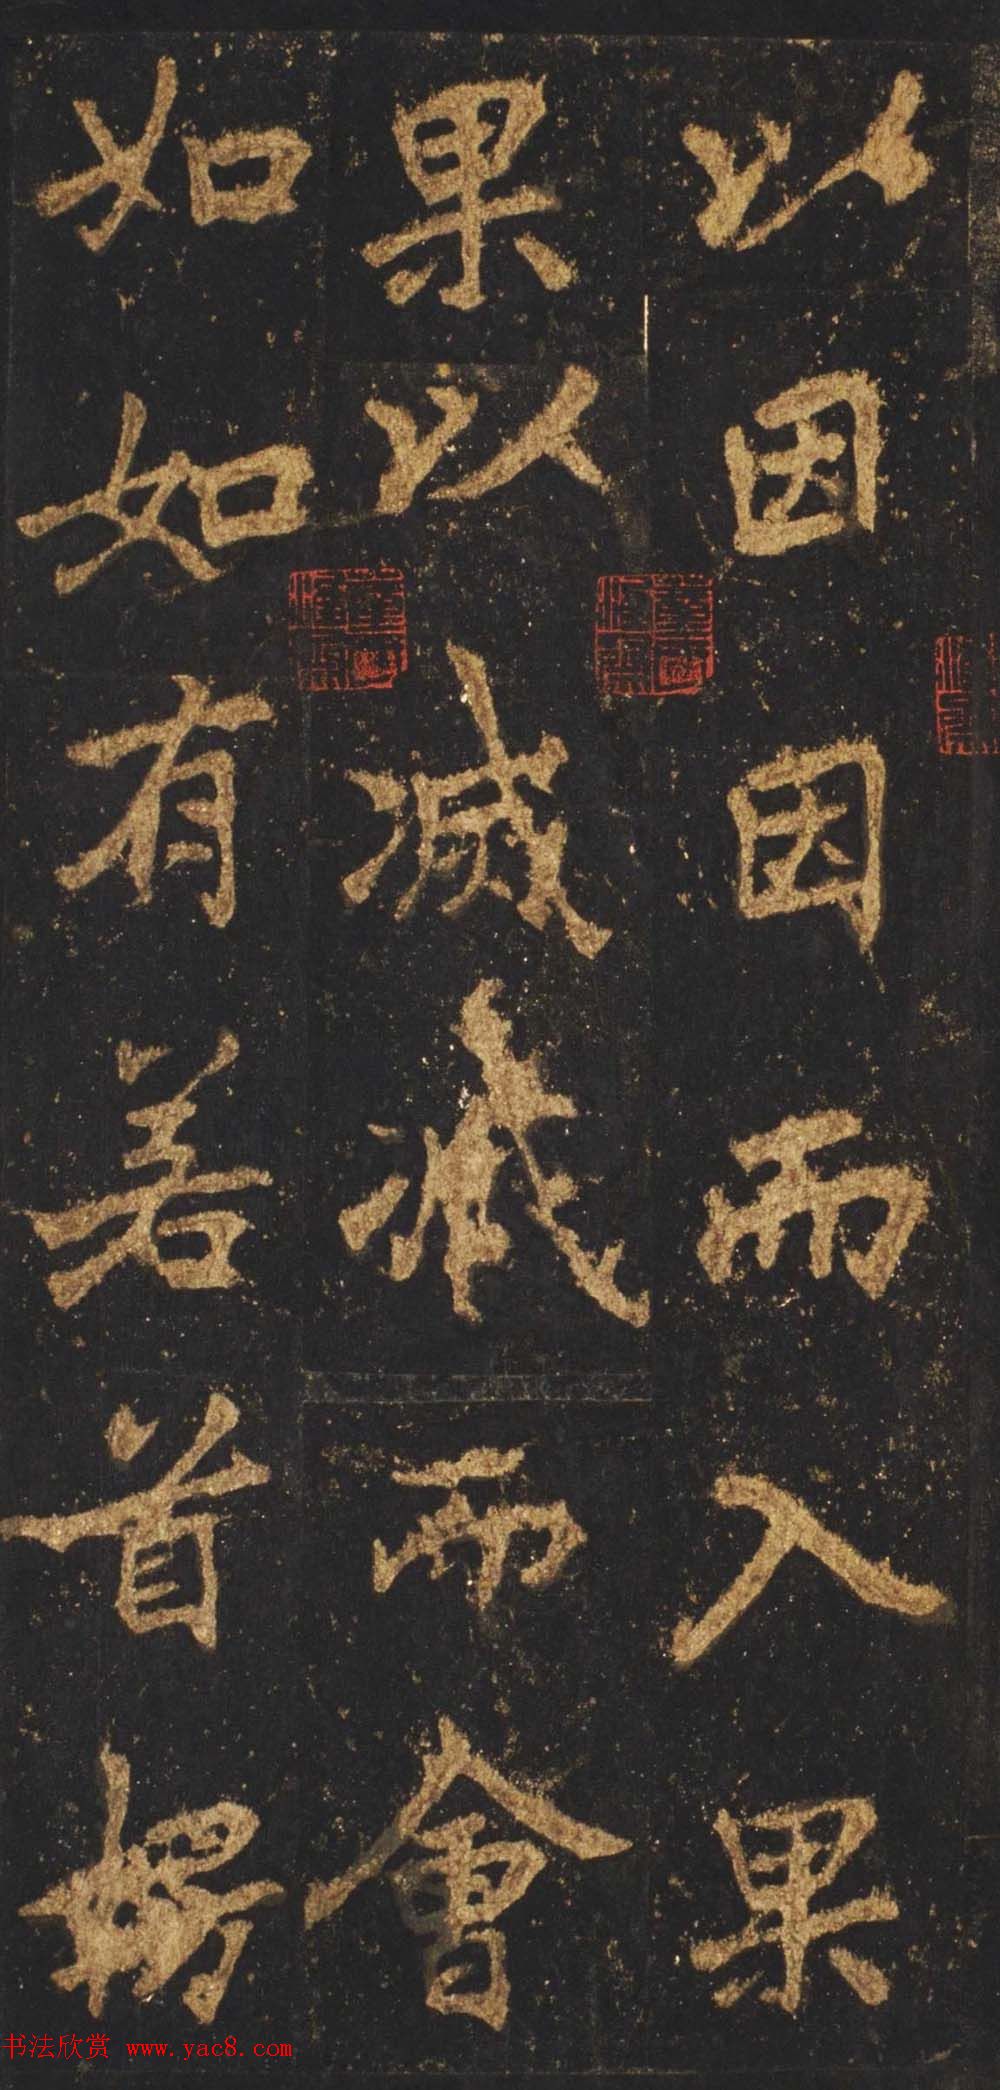 以因因而入果
果以滅滅而會
如如有若首楞
书法欣赏 www.yac8.com